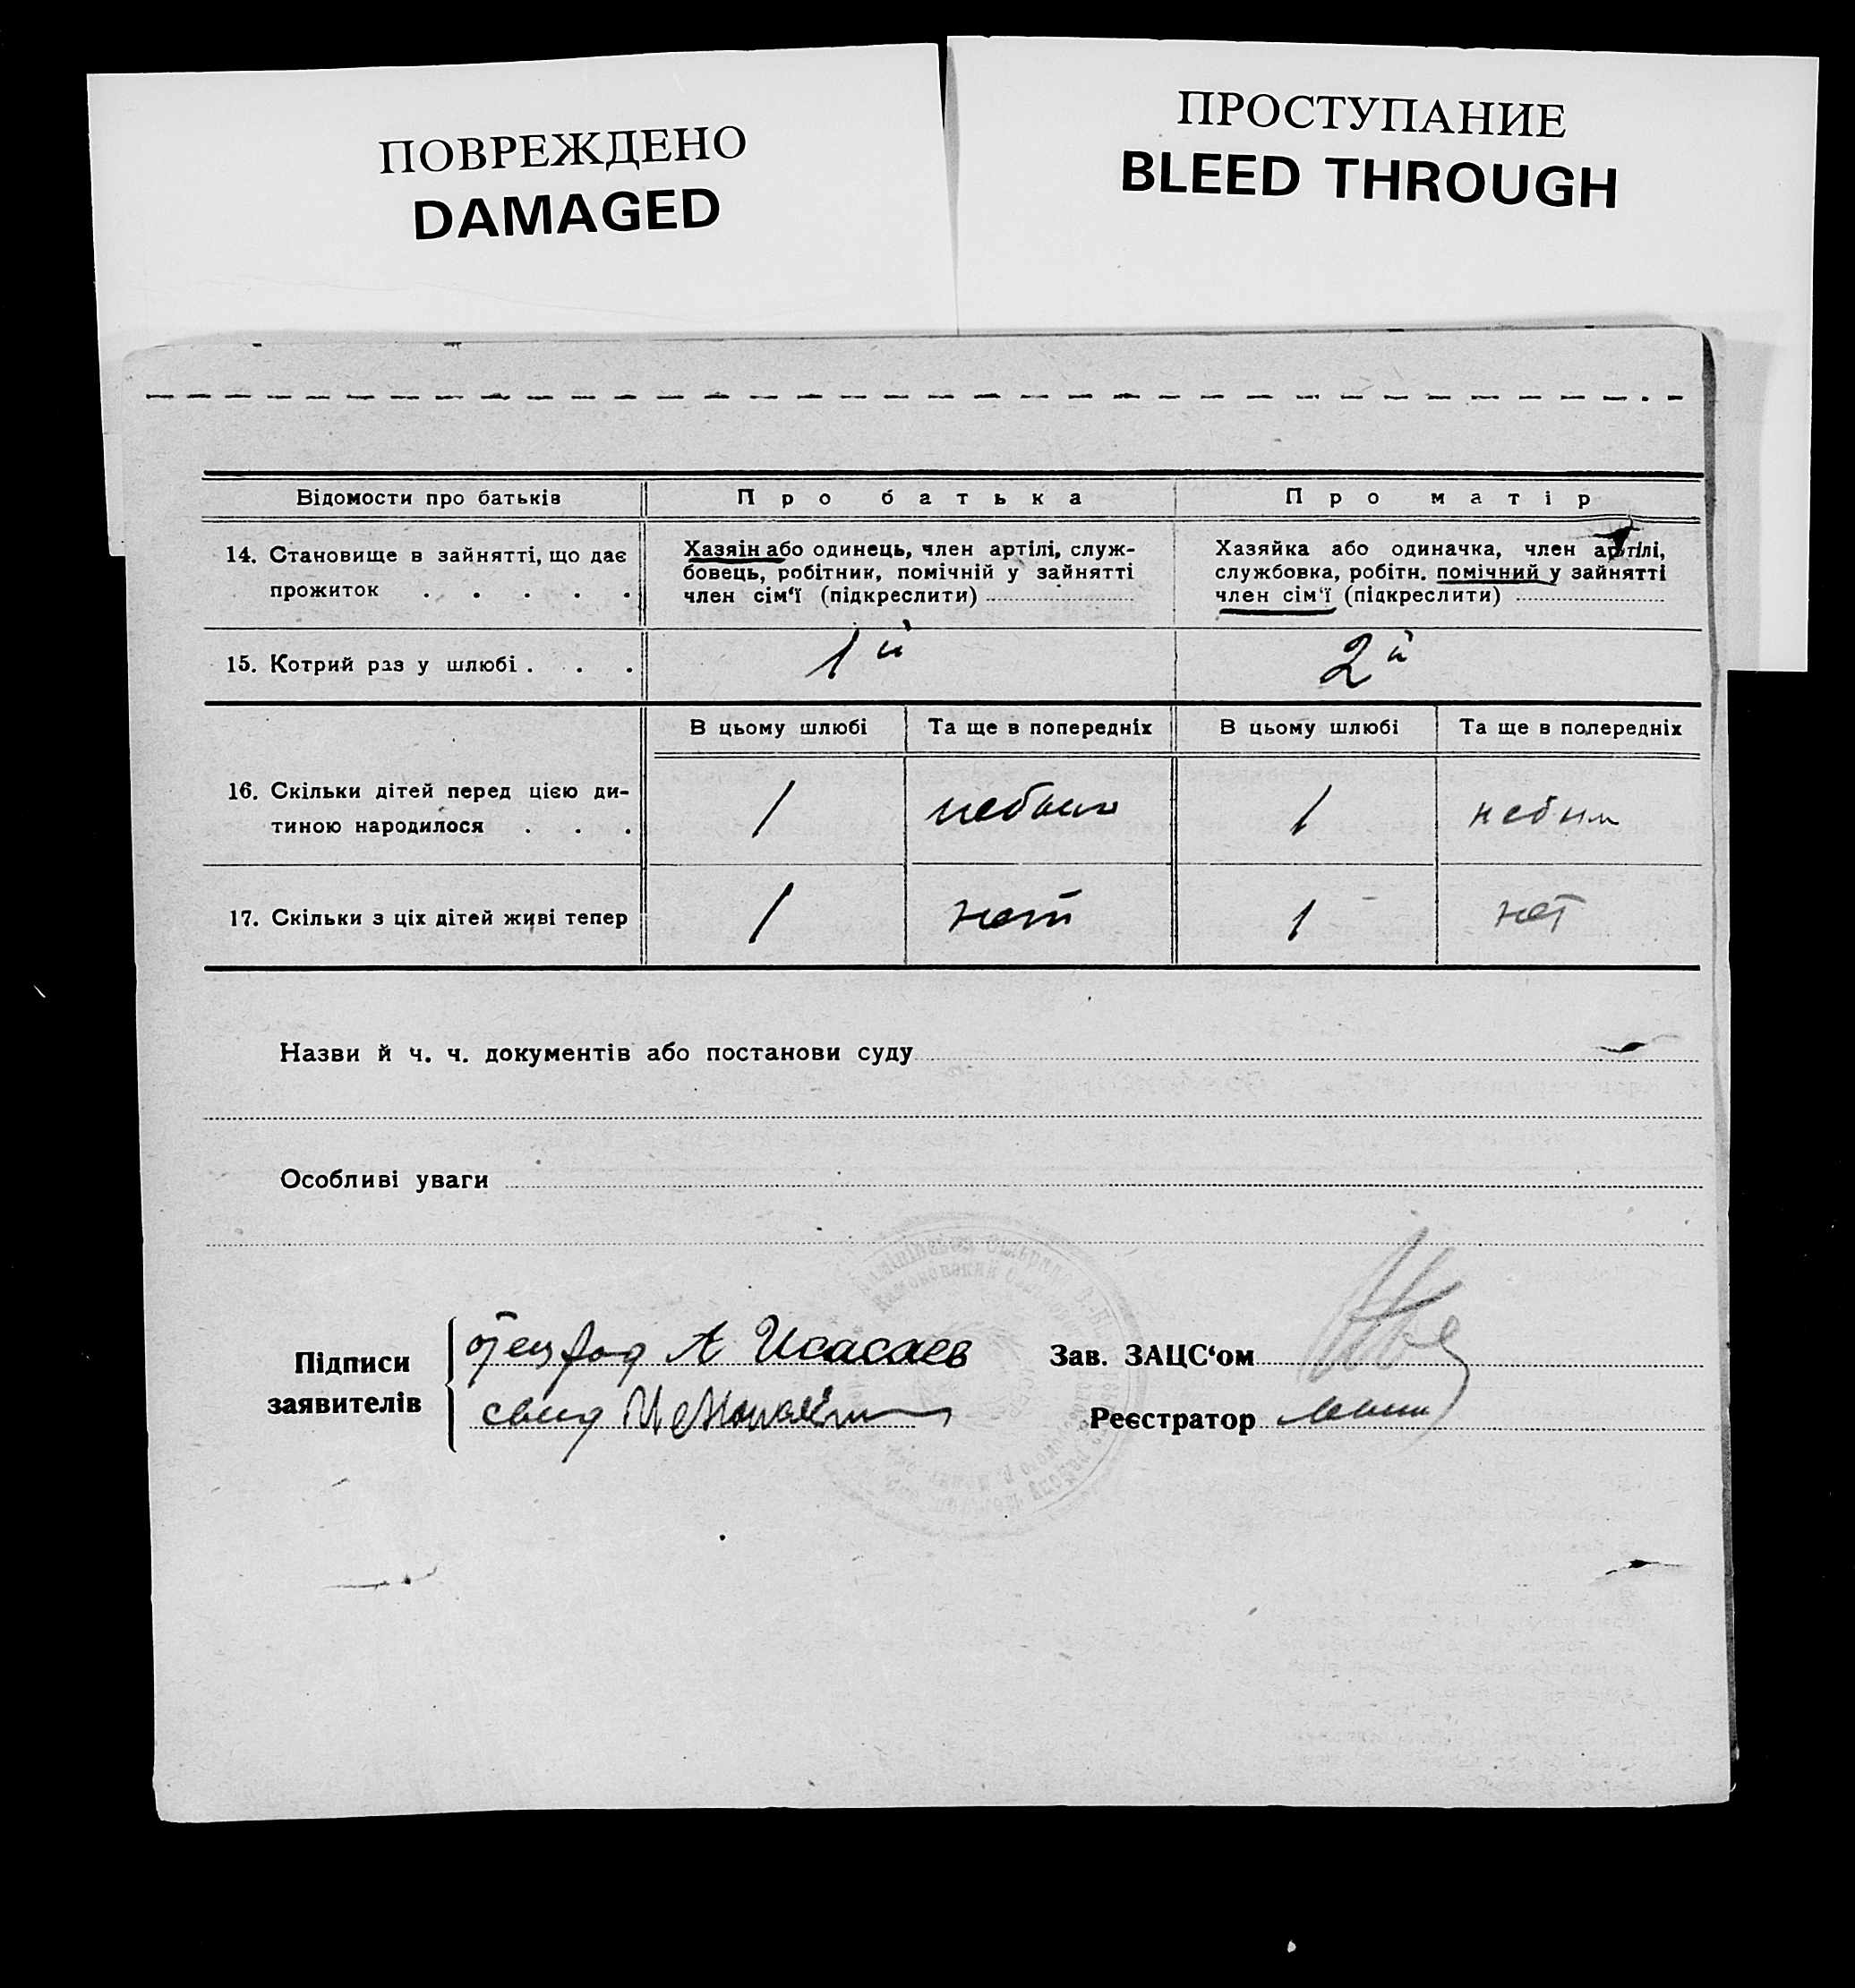 ПОВРЕЖДЕНО
DAMAGED
ПРОСТУПАНИЕ
BLEED THROUGH
Відомости про батьків
Про батька
Про матір
14. Становище в зайнятті, що дає
прожиток . . . . .
Хазяін або одинець, член артілі, служ-
бовець, робітник, помічній у зайнятті
член сім‘ї (підкреслити)
Хазяйка або одиначка, член артілі,
службовка, робітн. помічний у зайнятті
член сім‘ї (підкреслити)
15. Котрий раз у шлюбі . . .
1й
2й
В цьому шлюбі
Та ще в попередніх
В цьому шлюбі
Та ще в попередніх
16. Скільки дітей перед цією ди-
тиною народилося . . .
1
небыло
1
небыло
17. Скільки з ціх дітей живі тепер
1
нет
1
нет
Назви й ч. ч. документів або постанови суду
Особливі уваги
Підписи
заявителів
отец А Исасаев
свид
Зав. ЗАЦС‘ом
Реєстратор